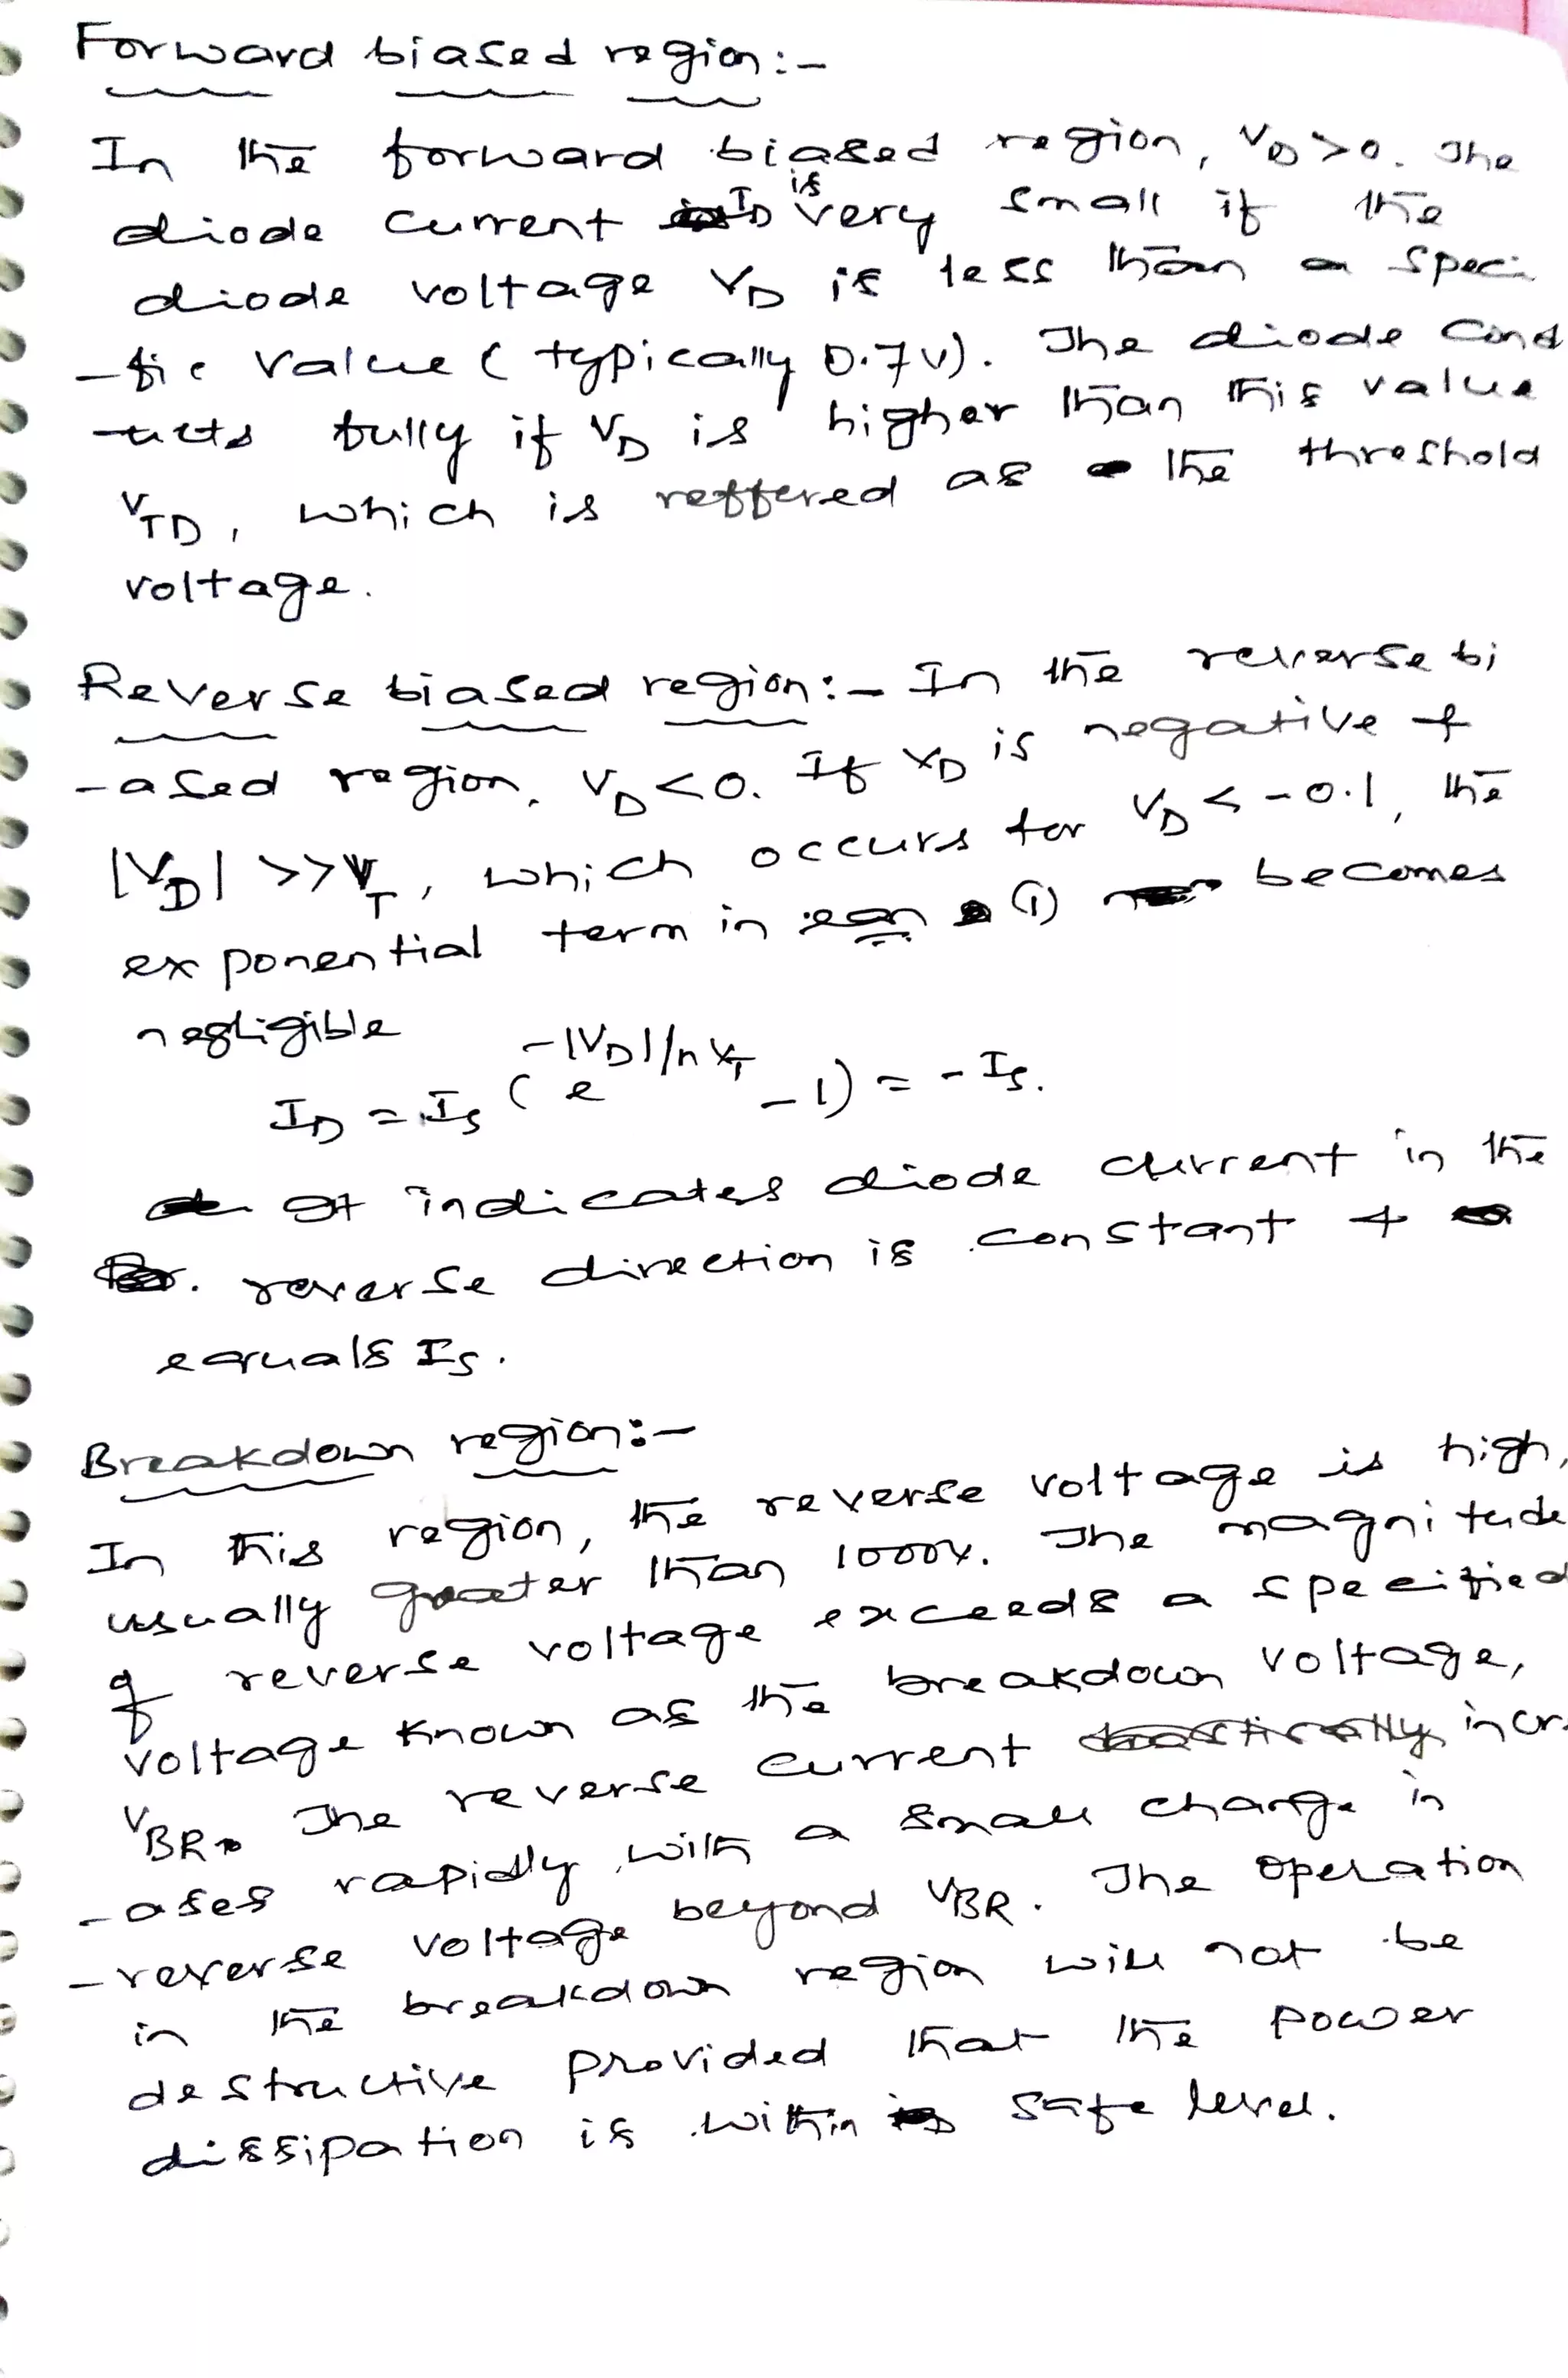 Forward biased region:-
In the forward biased region, VD>0. The
diode current ID is very small if the
diode voltage VD is less than a speci
-fic value (typically 0.7v). The diode cond
-ucts fully if VD is higher than this value
VTD, which is reffered as the threshold
voltage.
Reverse biased region:- In the reverse bi
-ased region, VD<0. If VD is negative &
|VD| >>VT, which occurs for VD < -0.1, the
exponential term in eqn (1) becomes
negligible
ID = IS (e^-|VD|/nVT -1) = - IS.
It indicates diode current in the
reverse direction is constant &
equals IS.
Breakdown region:-
In this region, the reverse voltage is high,
usually greater than 1000V. The magnitude
of reverse voltage exceeds a specified
voltage known as the breakdown voltage,
VBR. The reverse current incr
-ases rapidly with a small change in
-reverse voltage beyond VBR. The operation
in the breakdown region will not be
destructive provided that the power
dissipation is within safe level.